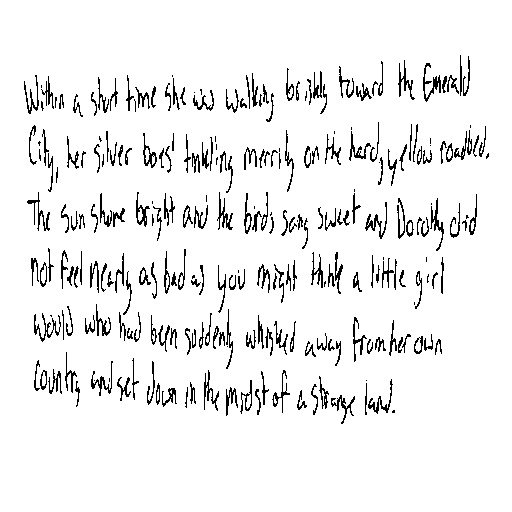 Within a short time she was walking briskly toward the Emerald
City, her silver boes' tinkling merrily on the hard, yellow roadbed.
The sun shone bright and the birds sang sweet and Dorothy did
not feel nearly as bad as you might think a little girl
would who had been suddenly whisked away from her own
country and set down in the midst of a strange land.